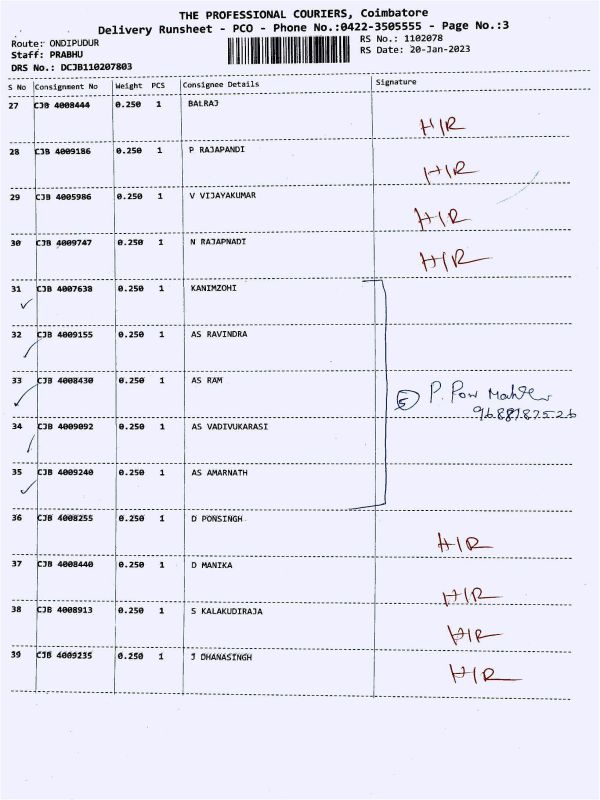 THE PROFESSIONAL COURIERS, Coimbatore
Delivery Runsheet - PCO - Phone No.:0422-3505555 - Page No.:3
Route: ONDIPUDUR
RS No.: 1102078
Staff: PRABHU
RS Date: 20-Jan-2023
DRS No.: DCJB110207803
S No Consignment No Weight PCS Consignee Details Signature
27 CJB 4008444 0.250 1 BALRAJ
HIR
28 CJB 4009186 0.250 1 P RAJAPANDI
HIR
29 CJB 4005986 0.250 1 V VIJAYAKUMAR
HIR
30 CJB 4009747 0.250 1 N RAJAPNADI
HIR
31 CJB 4007638 0.250 1 KANIMZOHI
32 CJB 4009155 0.250 1 AS RAVINDRA
33 CJB 4008430 0.250 1 AS RAM
5 P. Pow
34 CJB 4009092 0.250 1 AS VADIVUKARASI
35 CJB 4009240 0.250 1 AS AMARNATH
36 CJB 4008255 0.250 1 D PONSINGH
HIR
37 CJB 4008440 0.250 1 D MANIKA
HIR
38 CJB 4008913 0.250 1 S KALAKUDIRAJA
HIR
39 CJB 4009235 0.250 1 J DHANASINGH
HIR